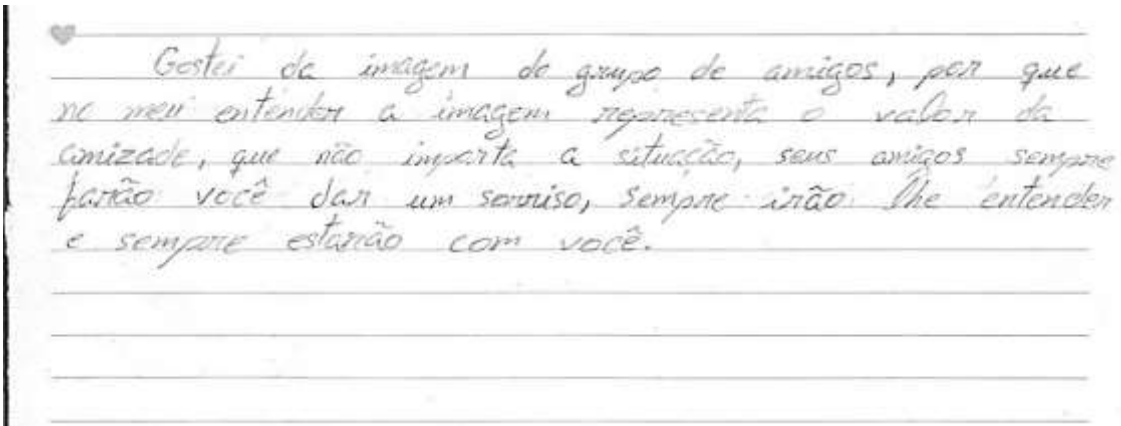 Gostei da imagem do grupo de amigos, por que
no meu entender a imagem representa o valor da
amizade, que não importa a situação, seus amigos sempre
farão você dar um sorriso, sempre irão lhe entender
e sempre estarão com você.